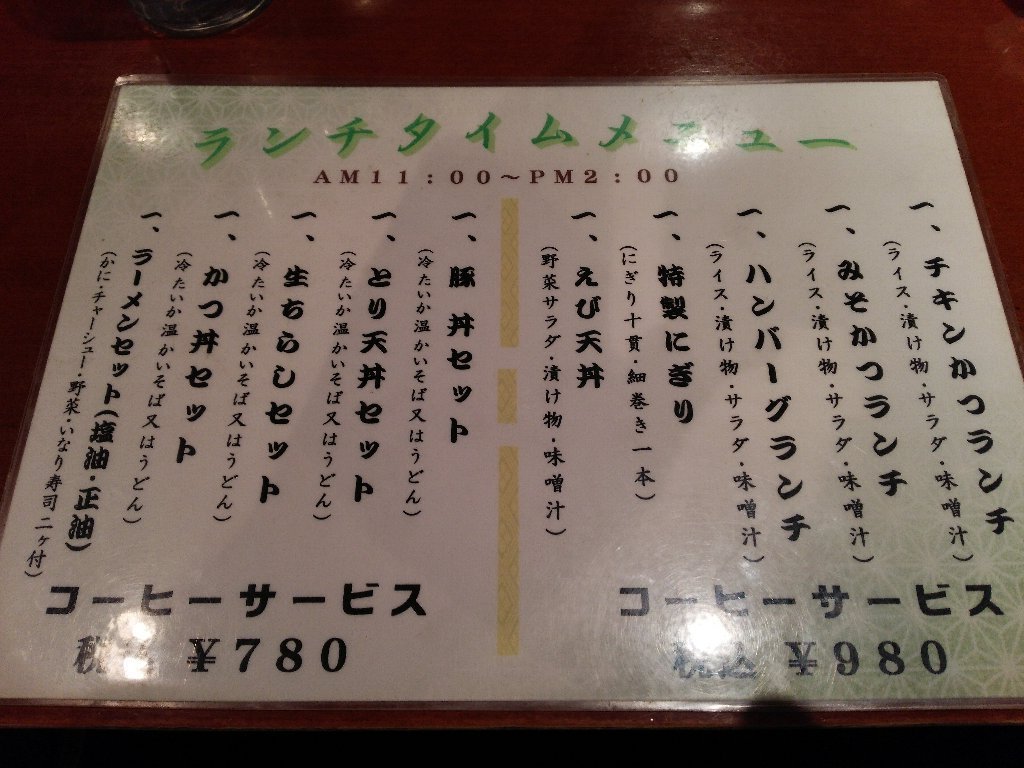 ランチタイムメニュー
AM11:00～PM2:00
一、チキンかつランチ
(ライス・漬け物・サラダ・味噌汁)
一、みそかつランチ
(ライス・漬け物・サラダ・味噌汁)
一、ハンバーグランチ
(ライス・漬け物・サラダ・味噌汁)
一、特製にぎり
(にぎり十貫・細巻き一本)
一、えび天丼
(野菜サラダ・漬け物・味噌汁)
コーヒーサービス
税込 ￥980
一、豚丼セット
(冷たいか温かいそば又はうどん)
一、とり天丼セット
(冷たいか温かいそば又はうどん)
一、生ちらしセット
(冷たいか温かいそば又はうどん)
一、かつ丼セット
(冷たいか温かいそば又はうどん)
一、ラーメンセット(塩油・正油)
(かに・チャーシュー・野菜いなり寿司二ヶ付)
コーヒーサービス
税込 ￥780